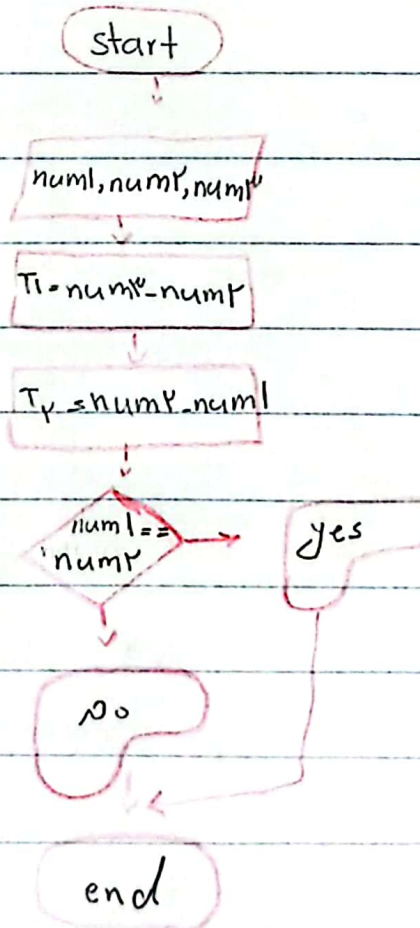 start
num۱, num۲, num۳
T۱ = num۳ - num۲
T۲ = num۲ - num۱
num۱ ==
num۲
yes
no
end